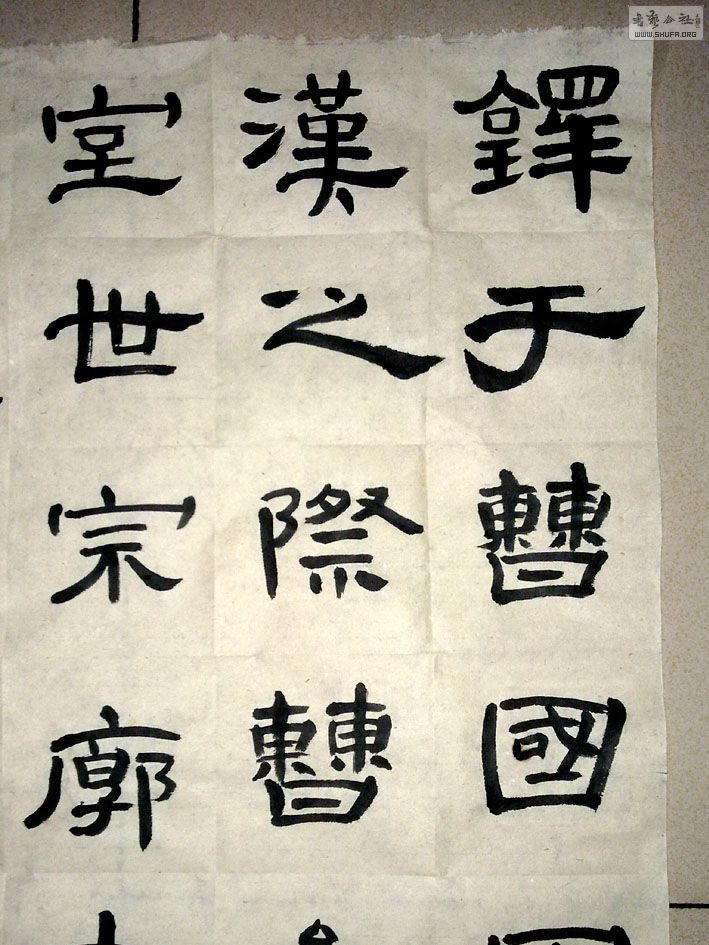 鐸于曹國
漢之際曹
室世宗廓
書藝公社
WWW.SHUFA.ORG